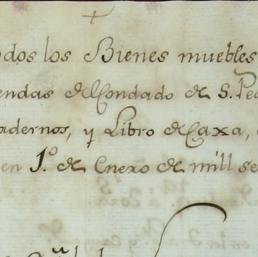 odos los Bienes muebles
endas del Condado de S. Pe
adernos, y Libro de Caxa,
en 1.º de Enero de mill se